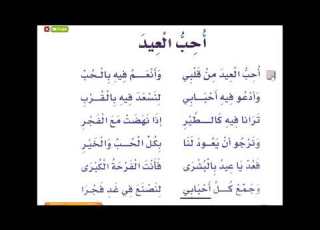 أُحِبُّ الْعِيدَ
أُحِبُّ الْعِيدَ مِنْ قَلْبِي وَأَنْعَمُ فِيهِ بِالْحُبِّ
وَأَدْعُو فِيهِ أَحْبَابِي لِنَسْعَدَ فِيهِ بِالْقُرْبِ
تَرَانَا فِيهِ كَالطَّيْرِ إِذَا نَهَضَتْ مَعَ الْفَجْرِ
وَنَرْجُو أَنْ يَعُودَ لَنَا بِكُلِّ الْحُبِّ وَالْخَيْرِ
فَعُدْ يَا عِيدُ بِالْبُشْرَى فَأَنْتَ الْفَرْحَةُ الْكُبْرَى
وَجَمِّعْ كُلَّ أَحْبَابِي لِنَصْنَعَ فِي غَدٍ فَجْرَا